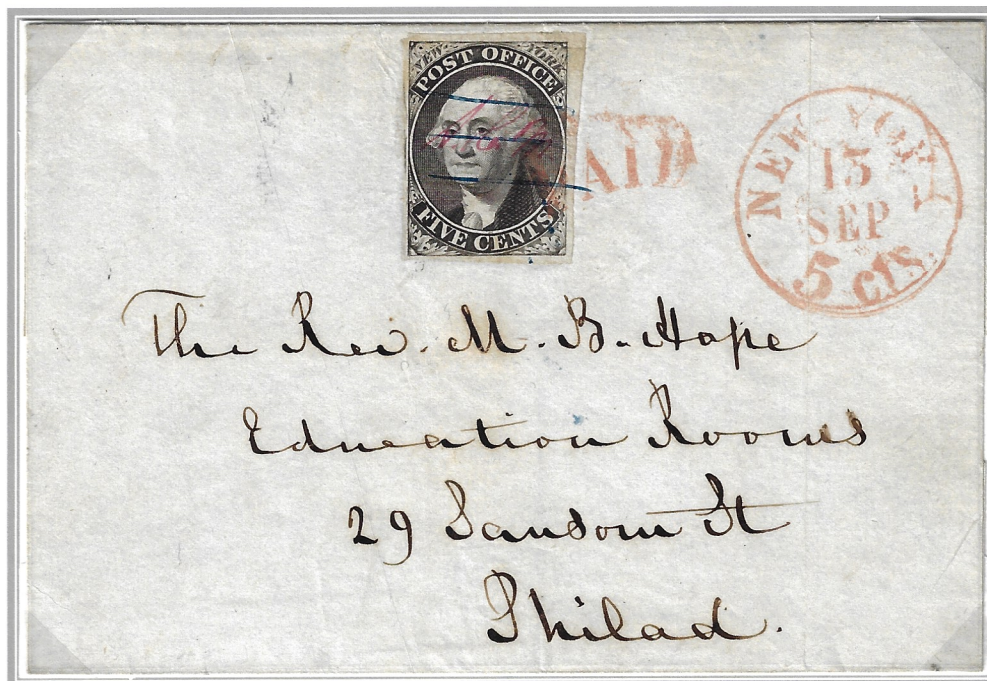 NEW YORK
POST OFFICE
FIVE CENTS
PAID
NEW-YORK
13
SEP
5 cts.
The Rev. M. B. Hope
Education Rooms
29 Sansom St
Philad.